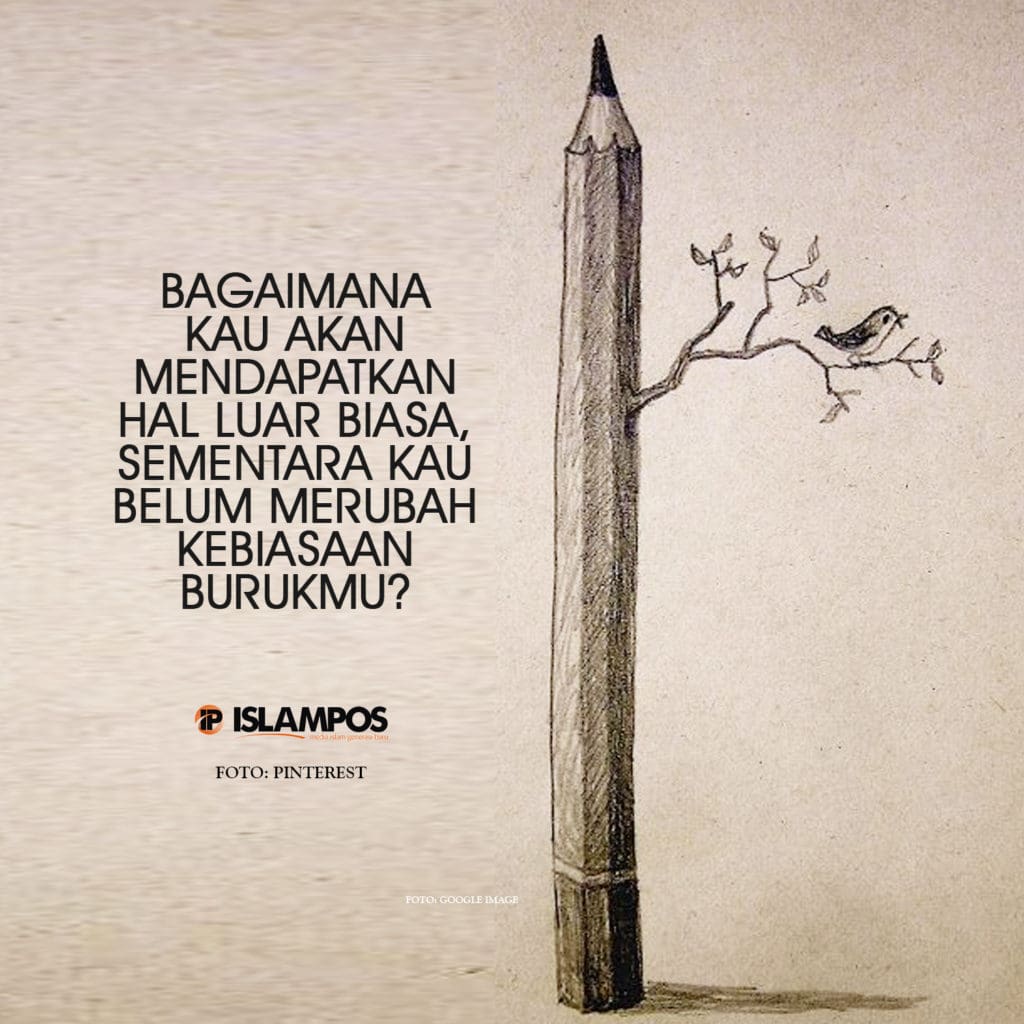 BAGAIMANA
KAU AKAN
MENDAPATKAN
HAL LUAR BIASA,
SEMENTARA KAU
BELUM MERUBAH
KEBIASAAN
BURUKMU?
IP ISLAMPOS
media islam generasi baru
FOTO: PINTEREST
FOTO: GOOGLE IMAGE